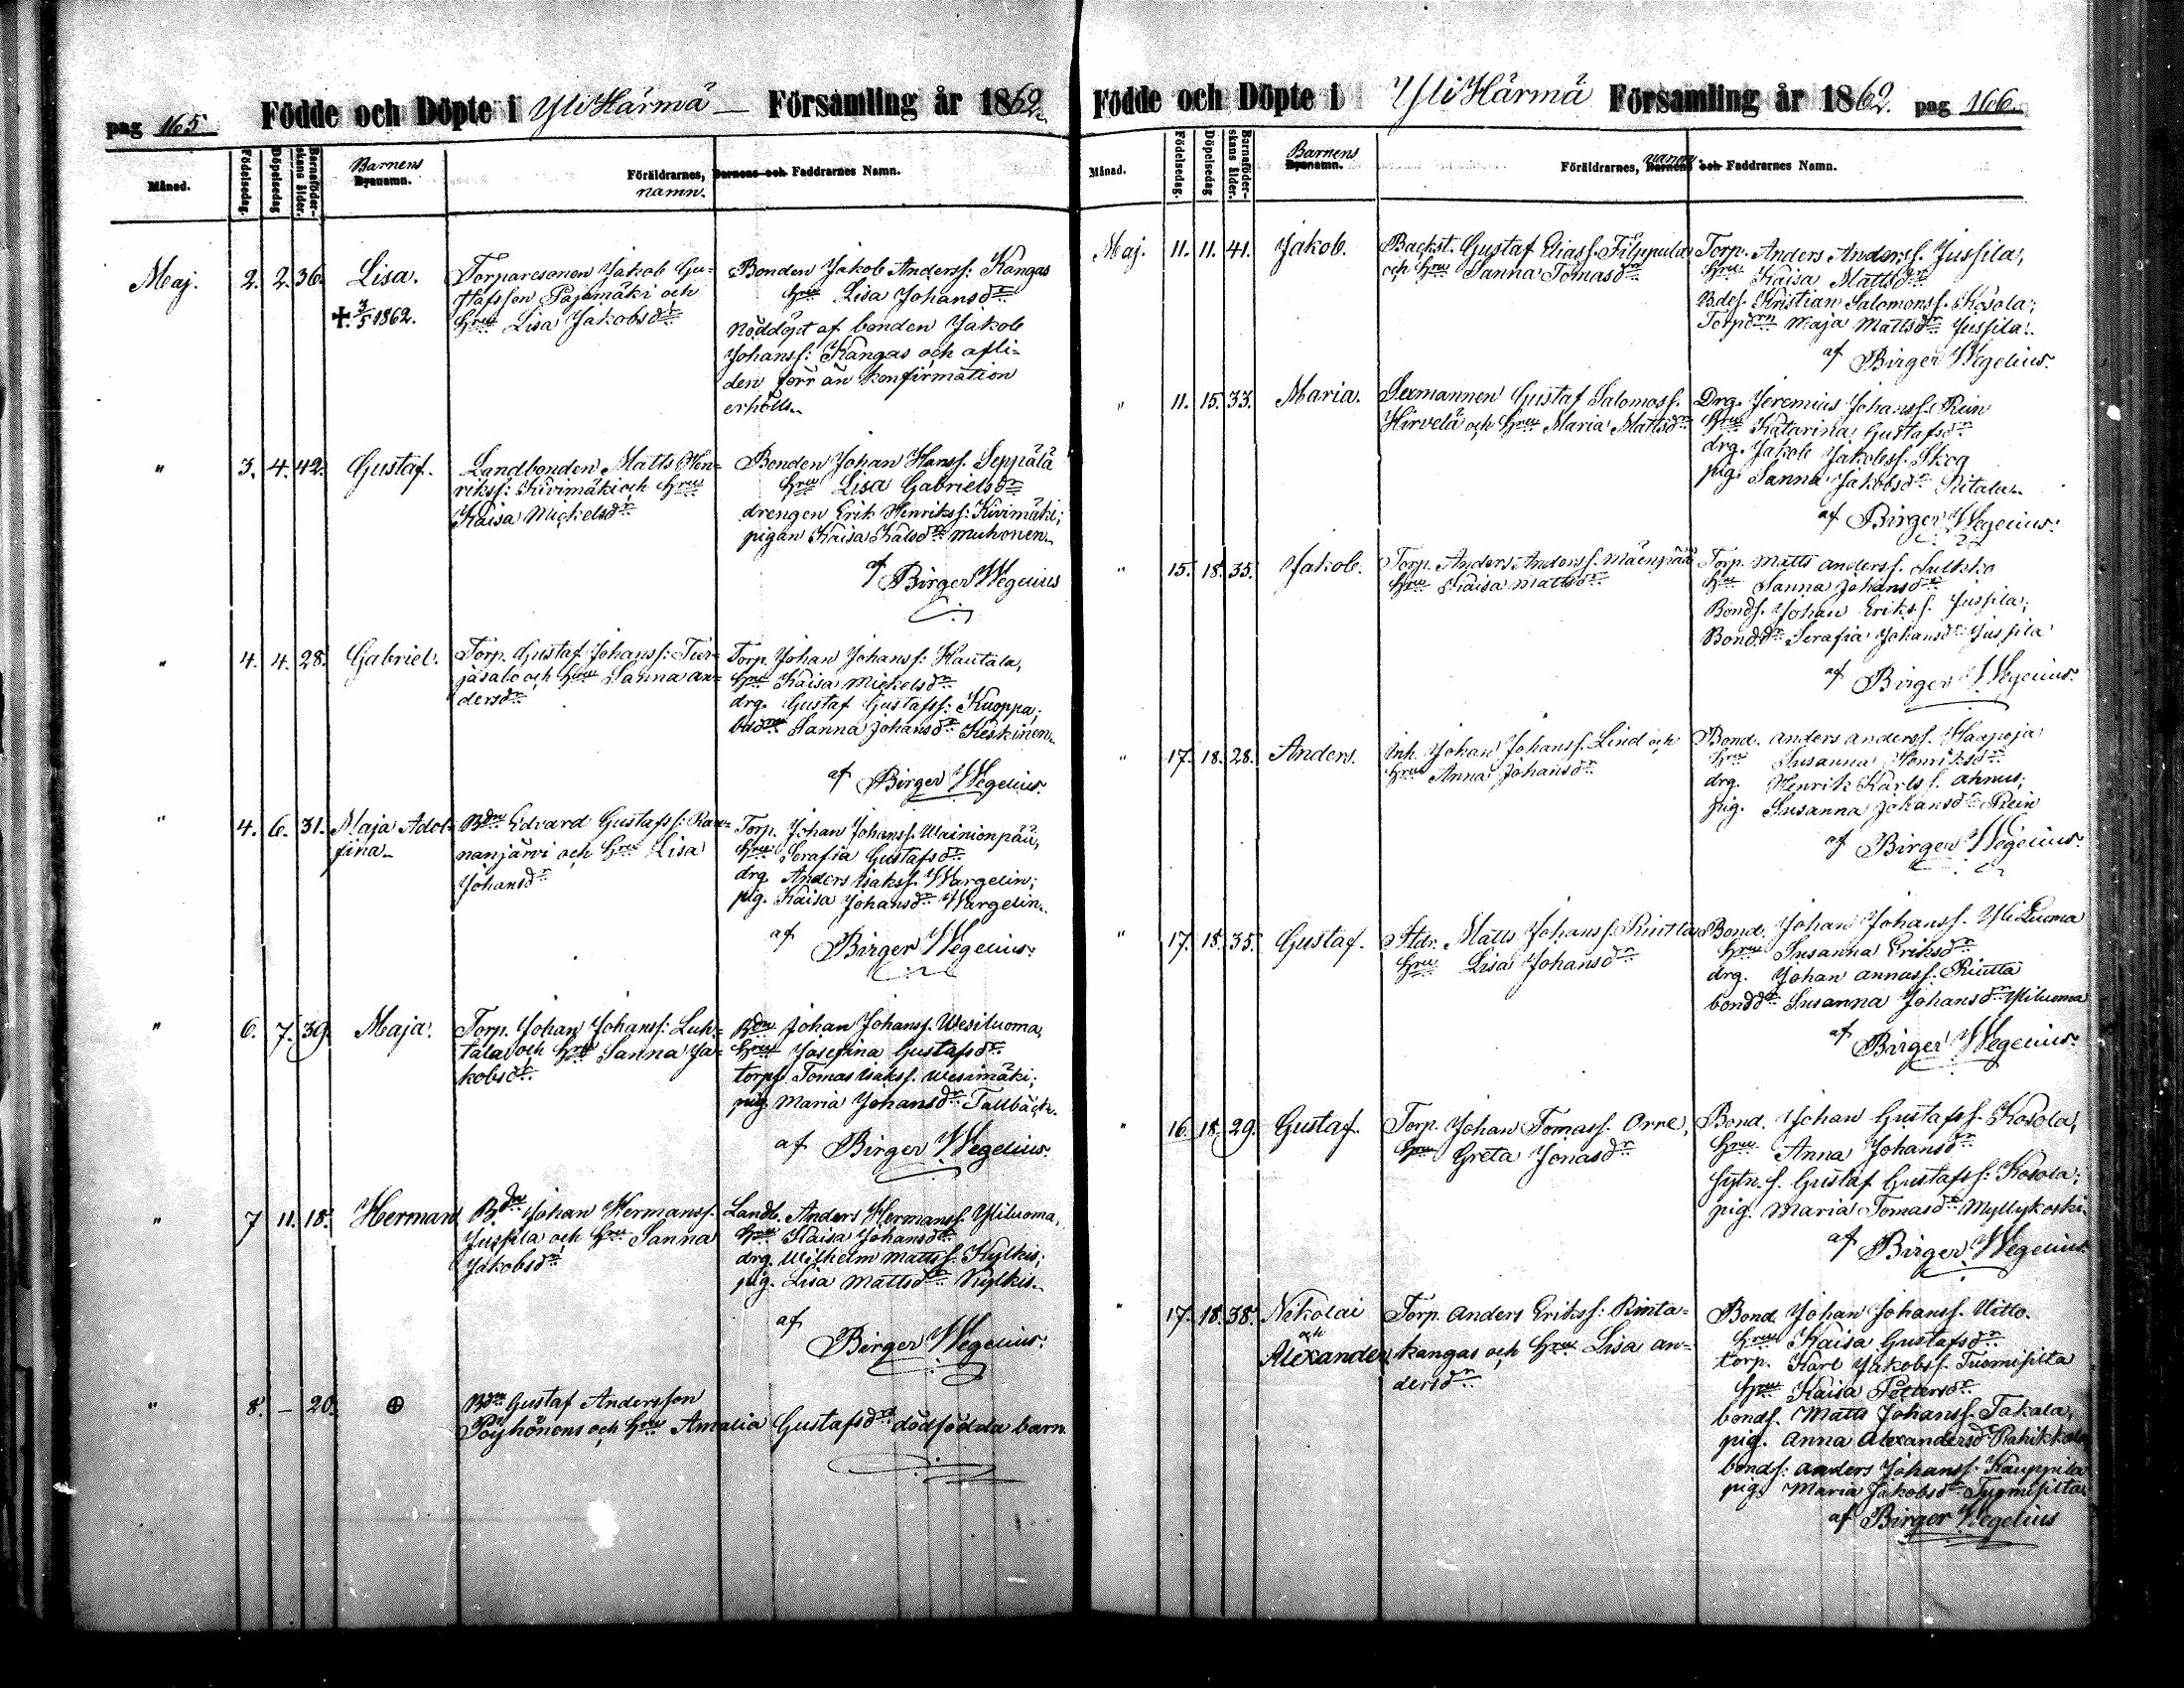 pag 165 Födde och Döpte i Yli Härmä Församling år 1862.
Månad. Födelsedag. Döpelsedag Barnaföderskans ålder. Barnens Byanamn. Föräldrarnes, namn. Barnens och Faddrarnes Namn.
Maj. 2. 2. 36. Lisa.
✝ 3/5 1862.
Torparesonen Jakob Gu-
stafsson Pajamäki och
hru Lisa Jakobsdr
Bonden Jakob Anderss: Kangas
hru Lisa Johansdr
Nöddöpt af bonden Jakob
Johanss: Kangas och afli-
den förr än konfirmation
erhölls.
" 3. 4. 42. Gustaf.
Landbonden Matts Hen-
rikss: Kivimäki och hru
Kaisa Mickelsdr
Bonden Johan Hanss. Seppälä
hru Lisa Gabrielsdr
drengen Erik Henrikss: Kivimäki;
pigan Kaisa Kalsdr Muhonen
af Birger Wegelius
" 4. 4. 28. Gabriel.
Torp. Gustaf Johanss: Tur-
jasalo och hru Sanna An-
dersdr
Torp. Johan Johanss: Kautala,
hru Kaisa Mickelsdr
drg. Gustaf Gustafss: Kuoppa;
Sanna Johansdr Keskinen
af Birger Wegelius.
" 4. 6. 31. Maja Adol-
fina
Bdn Edvard Gustafss: Ran-
nanjärvi och hru Lisa
Johansdr
Torp. Johan Johanss. Wainionpää,
hru Serafia Gustafsdr
drg. Anders Isakss. Wargelin;
pig. Kaisa Johansdr Wargelin
af Birger Wegelius.
" 6. 7. 39. Maja.
Torp. Johan Johanss: Luh-
tala och hru Sanna Ja-
kobsdr
Bdn Johan Johanss. Wesiluoma,
hru Josefina Gustafsdr
torps Tomas Isakss. Wesimäki;
pig Maria Johansdr Tallbäck.
af Birger Wegelius.
" 7 11. 18. Herman
Bdn Johan Hermanss.
Jussila och hru Sanna
Jakobsdr
Landb. Anders Hermanss. Yliluoma,
hru Kaisa Johansdr
drg. Wilhelm Mattss. Kylkis;
pig. Lisa Mattsdr Kylkis
af
Birger Wegelius.
" 8. – 20. ⊕
Bdn Gustaf Andersson
Pöyhönens och hru Amalia Gustafsdr dödfödda barn.
Födde och Döpte i Yli Härmä Församling år 1862. pag 166
Månad. Födelsedag. Döpelsedag Barnaföderskans ålder. Barnens Byanamn. Föräldrarnes, namn. Barnens och Faddrarnes Namn.
Maj. 11. 11. 41. Jakob.
Backst. Gustaf Eliass. Filppula
och hru Sanna Tomasdr
Torp. Anders Anderss. Jussila,
hru Kaisa Mattsdr
Bdes. Kristian Salomonss. Kosola;
Torpdrn Maja Mattsdr Jussila.
af Birger Wegelius.
" 11. 15. 33. Maria.
Sexmannen Gustaf Salomoss.
Hirvelä och hru Maria Mattsdr
Drg. Jeremias Johanss. Rein
hru Katarina Gustafsdr
drg. Jakob Jakobss. Skog
pig. Sanna Jakobsdr
af Birger Wegelius.
" 15. 18. 35. Jakob.
Torp. Anders Anderss. Mäenpää
hru Kaisa Mattsdr
Torp. Matts Anderss. Sulkko
hru Sanna Johansdr
Bonds. Johan Erikss. Jussila;
Bonddr Serafia Johansdr Jussila
af Birger Wegelius.
" 17. 18. 28. Anders.
Inh. Johan Johanss. Lind och
hru Anna Johansdr
Bond. Anders Anderss. Haapoja
hru Susanna Henriksdr
drg. Henrik Karlss. Ahnus;
pig. Susanna Johansdr Rein
af Birger Wegelius.
" 17. 18. 35. Gustaf.
Matts Johanss. Rintta
hru Lisa Johansdr
Bond. Johan Johanss. YliLuoma
hru Susanna Eriksdr
drg. Johan Annuss. Rintta
bonddr Susanna Johansdr Yliluoma
af Birger Wegelius.
" 16. 18. 29. Gustaf.
Torp. Johan Tomass. Orre,
hru Greta Jonasdr
Bond. Johan Gustafss. Kosola,
hru Anna Johansdr
Gustaf Gustafss: Kosola;
pig. Maria Tomasdr Myllykoski.
af Birger Wegelius.
" 17. 18. 38. Nikolai
och
Alexander
Torp. Anders Erikss: Rinta-
kangas och hru Lisa An-
dersdr
Bond. Johan Johanss. Uitto.
hru Kaisa Gustafsdr
torp. Karl Jakobss. Tuomisilta
hru Kaisa Pettersdr
bonds. Matts Johanss. Takala,
pig. Anna Alexandersdr Rahikkala
bonds: Anders Johanss. Kauppila
pig. Maria Jakobsdr Tuomisilta
af Birger Wegelius